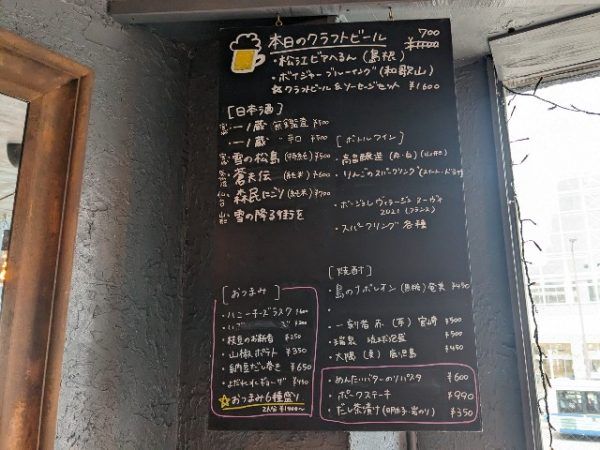 本日のクラフトビール 700
¥1100
・松江ビアへるん (島根)
・ボイジャーブルーイング (和歌山)
☆クラフトビール&ソーセージセット ¥1600
[日本酒]
一ノ蔵 ¥500
一ノ蔵 辛口 ¥500
雪の松島 ¥500
蒼天伝 (純米) ¥600
森民にごり (純米) ¥700
雪の降る街を
[ボトルワイン]
・りんごのスパークリング
・ボージョレ ヴィラージュ ヌーヴォ
2021 (フランス)
・スパークリング 各種
[おつまみ]
・ハニーチーズラスク
・枝豆のお新香 ¥250
・山椒ポテト ¥350
・納豆だし巻き ¥650
・よだれ水ギョーザ
☆おつまみ6種盛り
2人分 ¥1400〜
[焼酎]
・島のナポレオン (黒糖) 奄美 ¥450
・一刻者 赤 (芋) 宮崎 ¥500
・瑞泉 琉球泡盛 ¥500
・大隅 (麦) 鹿児島 ¥450
・めんたいバターのリパスタ ¥600
・ポークステーキ ¥990
・だし茶漬け (明太子・岩のり) ¥350